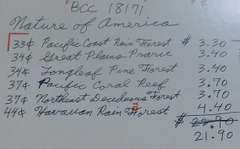 BCC 18171
Nature of America
33¢ Pacific Coast Rain Forest $ 3.30
34¢ Great Plains Prairie 3.40
34¢ Longleaf Pine Forest 3.40
37¢ Pacific Coral Reef 3.70
37¢ Northeast Deciduous Forest 3.70
44¢ Hawaiian Rain Forest 4.40
$ 22.90
21.90